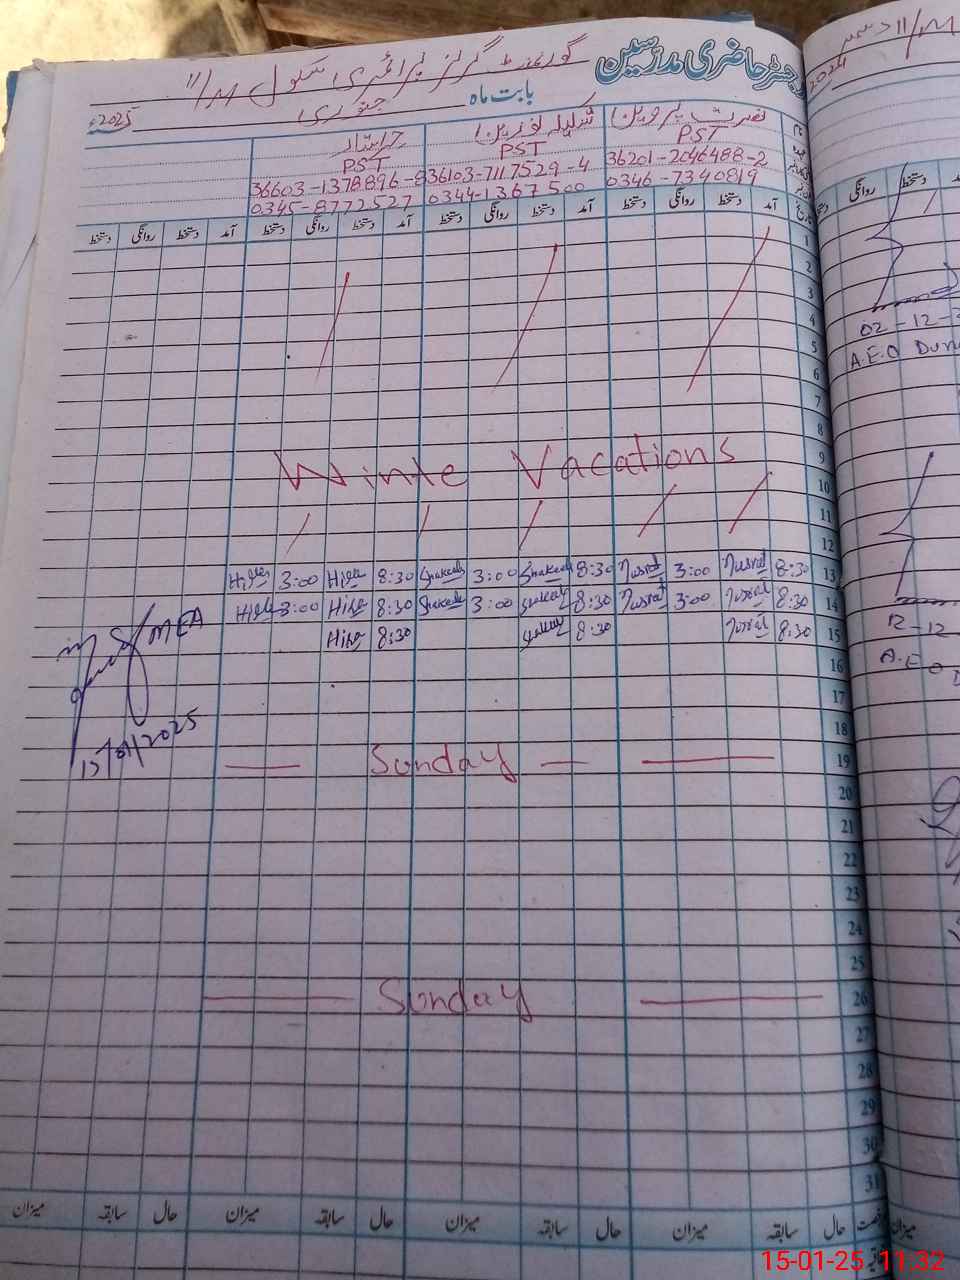 رجسٹر حاضری مدرسین گورنمنٹ گرلز پرائمری سکول 11/M
بابت ماہ جنوری 2025ء
نصرت پروین شکیلہ نورین حرا
PST PST PST
36201-2046488-2 36103-7117529-4 36603-1378896-8
0346-7340819 0344-1367500 0345-8772527
آمد دستخط روانگی دستخط آمد دستخط روانگی دستخط آمد دستخط روانگی دستخط آمد دستخط روانگی دستخط
1
2
3
4
5
6
7
8
9
Winte Vacations
10
11
12
Hira 3:00 Hira 8:30 Shakeela 3:00 Shakeela 8:30 Nusrat 3:00 Nusrat 8:30 13
Hira 3:00 Hira 8:30 Shakeela 3:00 Shakeela 8:30 Nusrat 3:00 Nusrat 8:30 14
Hira 8:30 Shakeela 8:30 Nusrat 8:30 15
MEA
15/01/2025
16
17
18
Sunday 19
20
21
22
23
24
25
Sunday 26
27
28
29
30
31
حال سابقہ میزان حال سابقہ میزان حال سابقہ میزان حال سابقہ میزان
11/M دسمبر
2024
روانگی دستخط
02-12-
A.E.O
12-12
A.E.O
میزان
15-01-25 11:32